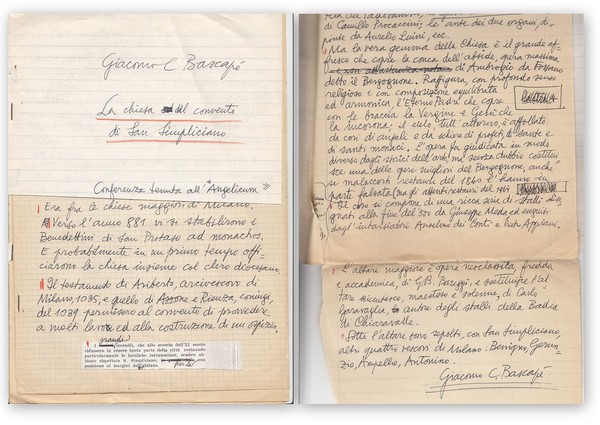 Giacomo C. Bascapé
La chiesa del convento
di San Simpliciano
Conferenza tenuta all'"Angelicum"
Era fra le chiese maggiori di Milano.
Verso l'anno 881 vi si stabilirono i
Benedettini di San Protaso ad monachos.
E probabilmente in un primo tempo offi-
ciarono la chiesa insieme col clero diocesano.
Il testamento di Ariberto, arcivescovo di
Milano, 1035, e quello di Azzone e Rienza, coniugi,
del 1089 permisero al convento di provvedere
a molti lavori ed alla costruzione di un ospizio.
grandi
I incendi, che allo scorcio dell'XI secolo
ridussero in cenere tanta parte della città
di Camillo Procaccini; le ante dei due organi, di-
pinte da Aurelio Luini, ecc.
Ma la vera gemma della Chiesa è il grande af-
fresco che copre la conca dell'abside, opera
di Ambrogio da Fossano
detto il Bergognone. Raffigura, con profondo senso
religioso e con composizione equilibrata
ed armonica, l'Eterno Padre che copre
con le braccia la Vergine e Gesù che
la incorona; il cielo tutt'attorno è affollato
da cori di angeli e da schiere di profeti, di sante e
di santi monaci. L'opera fu giudicata in modo
diverso dagli storici dell'arte, ma senza dubbio costitui
sce una delle opere migliori del Bergognone, anche
se malaccorti restauri del 1840 l'hanno in
parte falsata
Il coro si compone di una ricca serie di stalli dise-
gnati alla fine del '500 da Giuseppe Meda ed eseguiti
dagli intarsiatori Anselmo dei Conti e
L'altare maggiore è opera neoclassica, fredda
e accademica, di G.B. e sostituisce l'al
tare seicentesco, maestoso e solenne, di Carlo
Garavaglia, autore degli stalli della Badia
di Chiaravalle.
Sotto l'altare sono sepolti, con San Simpliciano
altri quattro vescovi di Milano: Benigno, Geron-
zio, Ampellio, Antonino.
Giacomo C. Bascapé